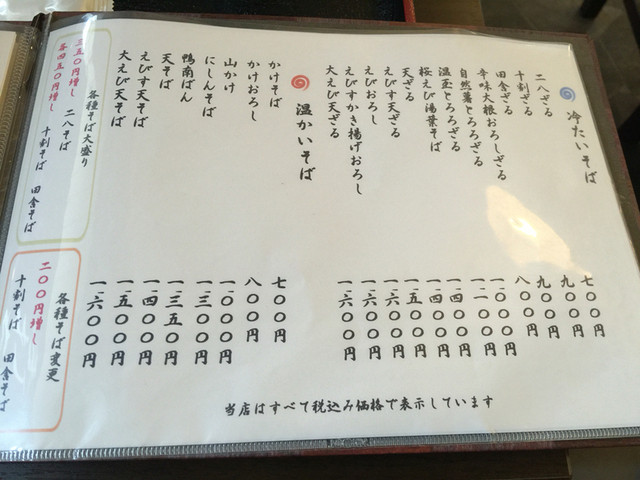 冷たいそば
二八ざる 七〇〇円
十割ざる 九〇〇円
田舎ざる 九〇〇円
辛味大根おろしざる 八〇〇円
自然薯とろろざる 一、〇〇〇円
温玉とろろざる 一、一〇〇円
桜えび湯葉そば 一、四〇〇円
天ざる 一、四〇〇円
えびす天ざる 一、五〇〇円
えびおろし 一、六〇〇円
えびすかき揚げおろし 一、六〇〇円
大えび天ざる 一、六〇〇円
温かいそば
かけそば 七〇〇円
かけおろし 八〇〇円
山かけ 一、〇〇〇円
にしんそば 一、三〇〇円
鴨南ばん 一、三五〇円
天そば 一、四〇〇円
えびす天そば 一、五〇〇円
大えび天そば 一、六〇〇円
各種そば大盛り
三五〇円増し 二八そば
各四五〇円増し 十割そば 田舎そば
各種そば変更
二〇〇円増し
十割そば 田舎そば
当店はすべて税込み価格で表示しています